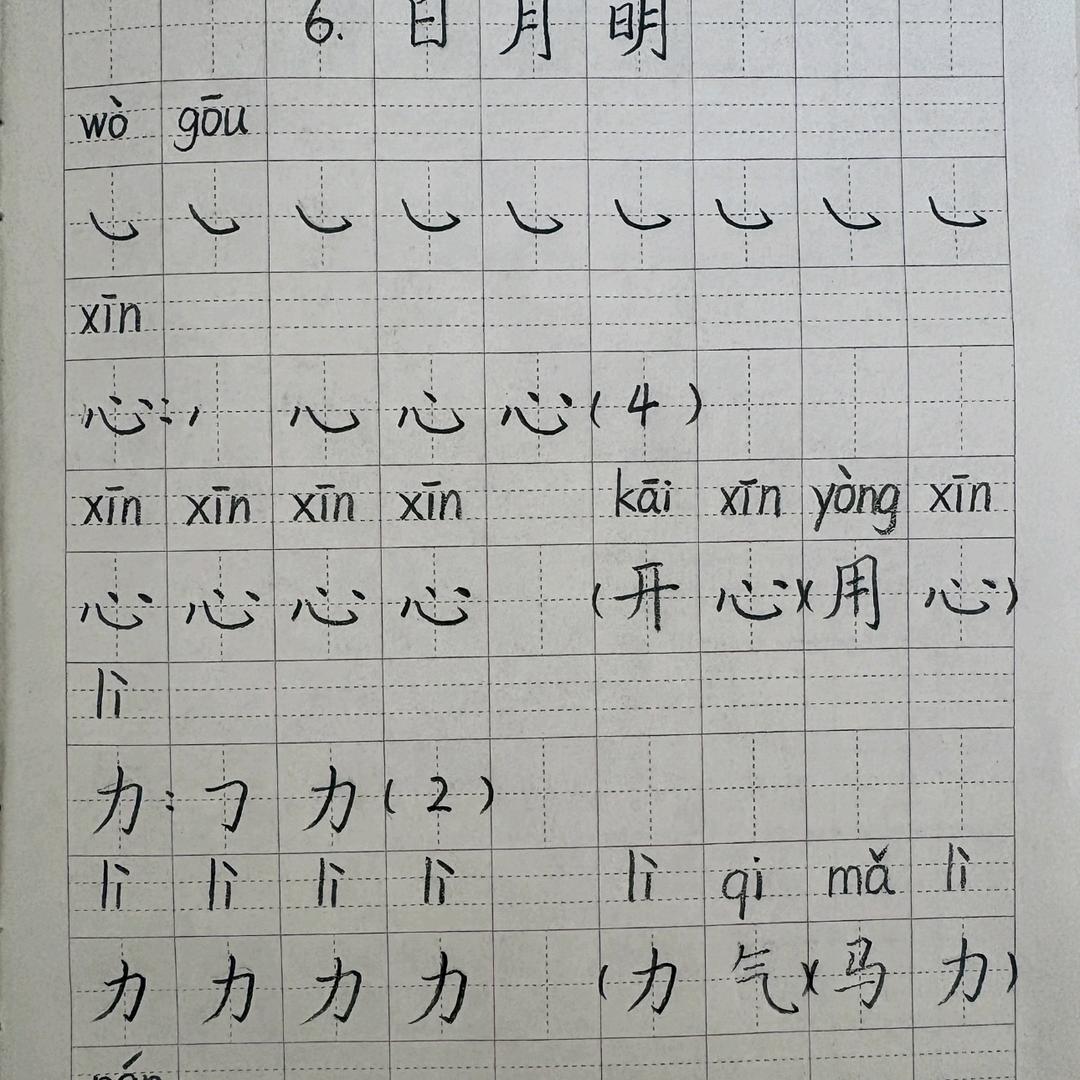 6. 日月明
wò gōu
㇃ ㇃ ㇃ ㇃ ㇃ ㇃ ㇃ ㇃ ㇃
xīn
心：丶 心 心 (4)
xīn xīn xīn xīn kāi xīn yòng xīn
心 心 心 心 (开心)(用心)
lì
力：㇆ 力 (2)
lì lì lì lì lì qi mǎ lì
力 力 力 力 (力气)(马力)